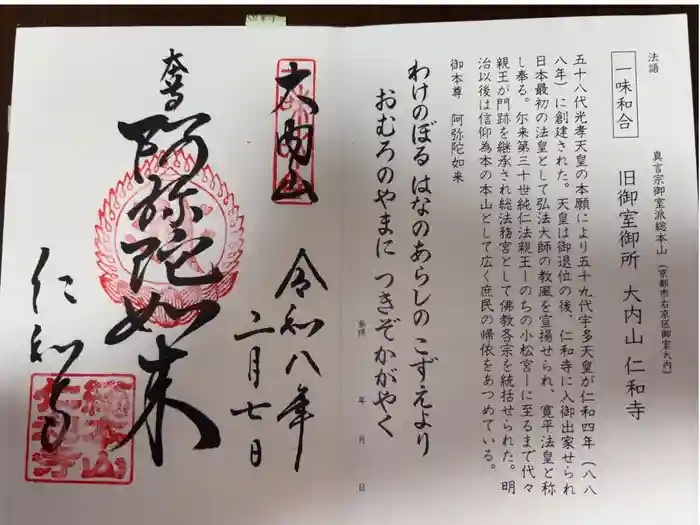 法語
一味和合
真言宗御室派総本山(京都市右京区御室大内)
旧御室御所 大内山 仁和寺
五十八代光孝天皇の本願により五十九代宇多天皇が仁和四年(八八
八年)に創建された。天皇は御退位の後、仁和寺に入御出家せられ
日本最初の法皇として弘法大師の教風を宣揚せられ、寛平法皇と称
し奉る。尓来第三十世純仁法親王―のちの小松宮―に至るまで代々
親王が門跡を継承され総法務宮として佛教各宗を統括せられた。明
治以後は信仰為本の本山として広く庶民の帰依をあつめている。
御本尊 阿弥陀如来
わけのぼる はなのあらしの こずえより
おむろのやまに つきぞかがやく
参拝 年 月 日
大内山
令和八年
二月七日
奉
阿弥陀如来
仁和寺
総本山
仁和寺